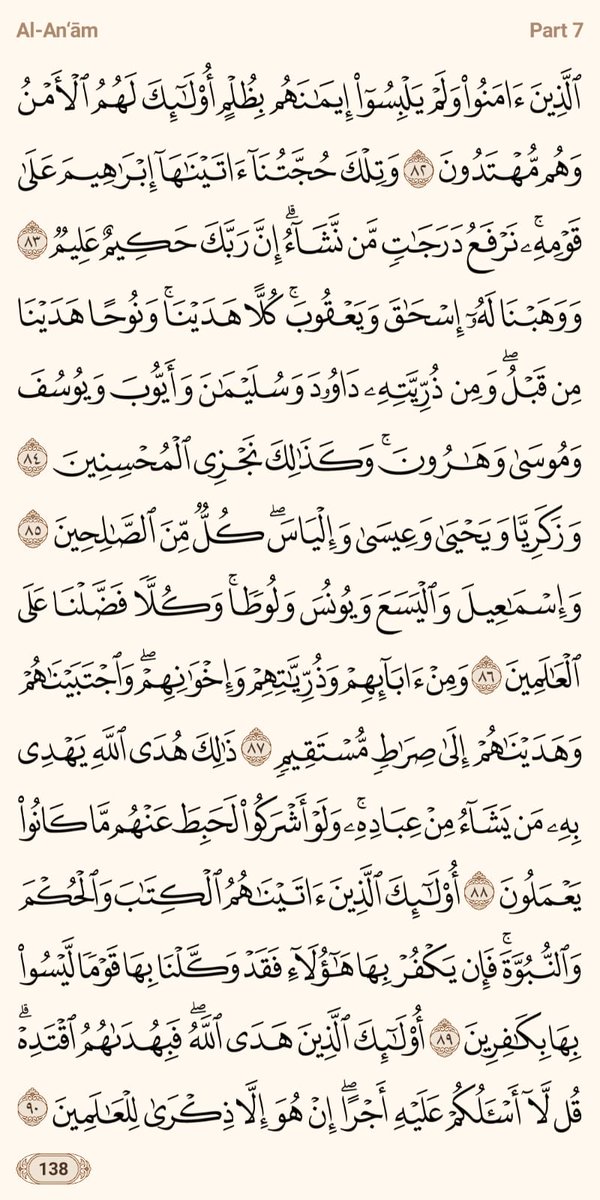 Al-An‘ām Part 7
ٱلَّذِينَ ءَامَنُوا۟ وَلَمْ يَلْبِسُوٓا۟ إِيمَـٰنَهُم بِظُلْمٍ أُو۟لَـٰٓئِكَ لَهُمُ ٱلْأَمْنُ
وَهُم مُّهْتَدُونَ ٨٢ وَتِلْكَ حُجَّتُنَآ ءَاتَيْنَـٰهَآ إِبْرَٰهِيمَ عَلَىٰ
قَوْمِهِۦ ۚ نَرْفَعُ دَرَجَـٰتٍ مَّن نَّشَآءُ ۗ إِنَّ رَبَّكَ حَكِيمٌ عَلِيمٌ ٨٣
وَوَهَبْنَا لَهُۥٓ إِسْحَـٰقَ وَيَعْقُوبَ ۚ كُلًّا هَدَيْنَا ۚ وَنُوحًا هَدَيْنَا
مِن قَبْلُ ۖ وَمِن ذُرِّيَّتِهِۦ دَاوُۥدَ وَسُلَيْمَـٰنَ وَأَيُّوبَ وَيُوسُفَ
وَمُوسَىٰ وَهَـٰرُونَ ۚ وَكَذَٰلِكَ نَجْزِى ٱلْمُحْسِنِينَ ٨٤
وَزَكَرِيَّا وَيَحْيَىٰ وَعِيسَىٰ وَإِلْيَاسَ ۖ كُلٌّ مِّنَ ٱلصَّـٰلِحِينَ ٨٥
وَإِسْمَـٰعِيلَ وَٱلْيَسَعَ وَيُونُسَ وَلُوطًا ۚ وَكُلًّا فَضَّلْنَا عَلَى
ٱلْعَـٰلَمِينَ ٨٦ وَمِنْ ءَابَآئِهِمْ وَذُرِّيَّـٰتِهِمْ وَإِخْوَٰنِهِمْ ۖ وَٱجْتَبَيْنَـٰهُمْ
وَهَدَيْنَـٰهُمْ إِلَىٰ صِرَٰطٍ مُّسْتَقِيمٍ ٨٧ ذَٰلِكَ هُدَى ٱللَّهِ يَهْدِى
بِهِۦ مَن يَشَآءُ مِنْ عِبَادِهِۦ ۚ وَلَوْ أَشْرَكُوا۟ لَحَبِطَ عَنْهُم مَّا كَانُوا۟
يَعْمَلُونَ ٨٨ أُو۟لَـٰٓئِكَ ٱلَّذِينَ ءَاتَيْنَـٰهُمُ ٱلْكِتَـٰبَ وَٱلْحُكْمَ
وَٱلنُّبُوَّةَ ۚ فَإِن يَكْفُرْ بِهَا هَـٰٓؤُلَآءِ فَقَدْ وَكَّلْنَا بِهَا قَوْمًا لَّيْسُوا۟
بِهَا بِكَـٰفِرِينَ ٨٩ أُو۟لَـٰٓئِكَ ٱلَّذِينَ هَدَى ٱللَّهُ ۖ فَبِهُدَىٰهُمُ ٱقْتَدِهْ ۗ
قُل لَّآ أَسْـَٔلُكُمْ عَلَيْهِ أَجْرًا ۖ إِنْ هُوَ إِلَّا ذِكْرَىٰ لِلْعَـٰلَمِينَ ٩٠
138